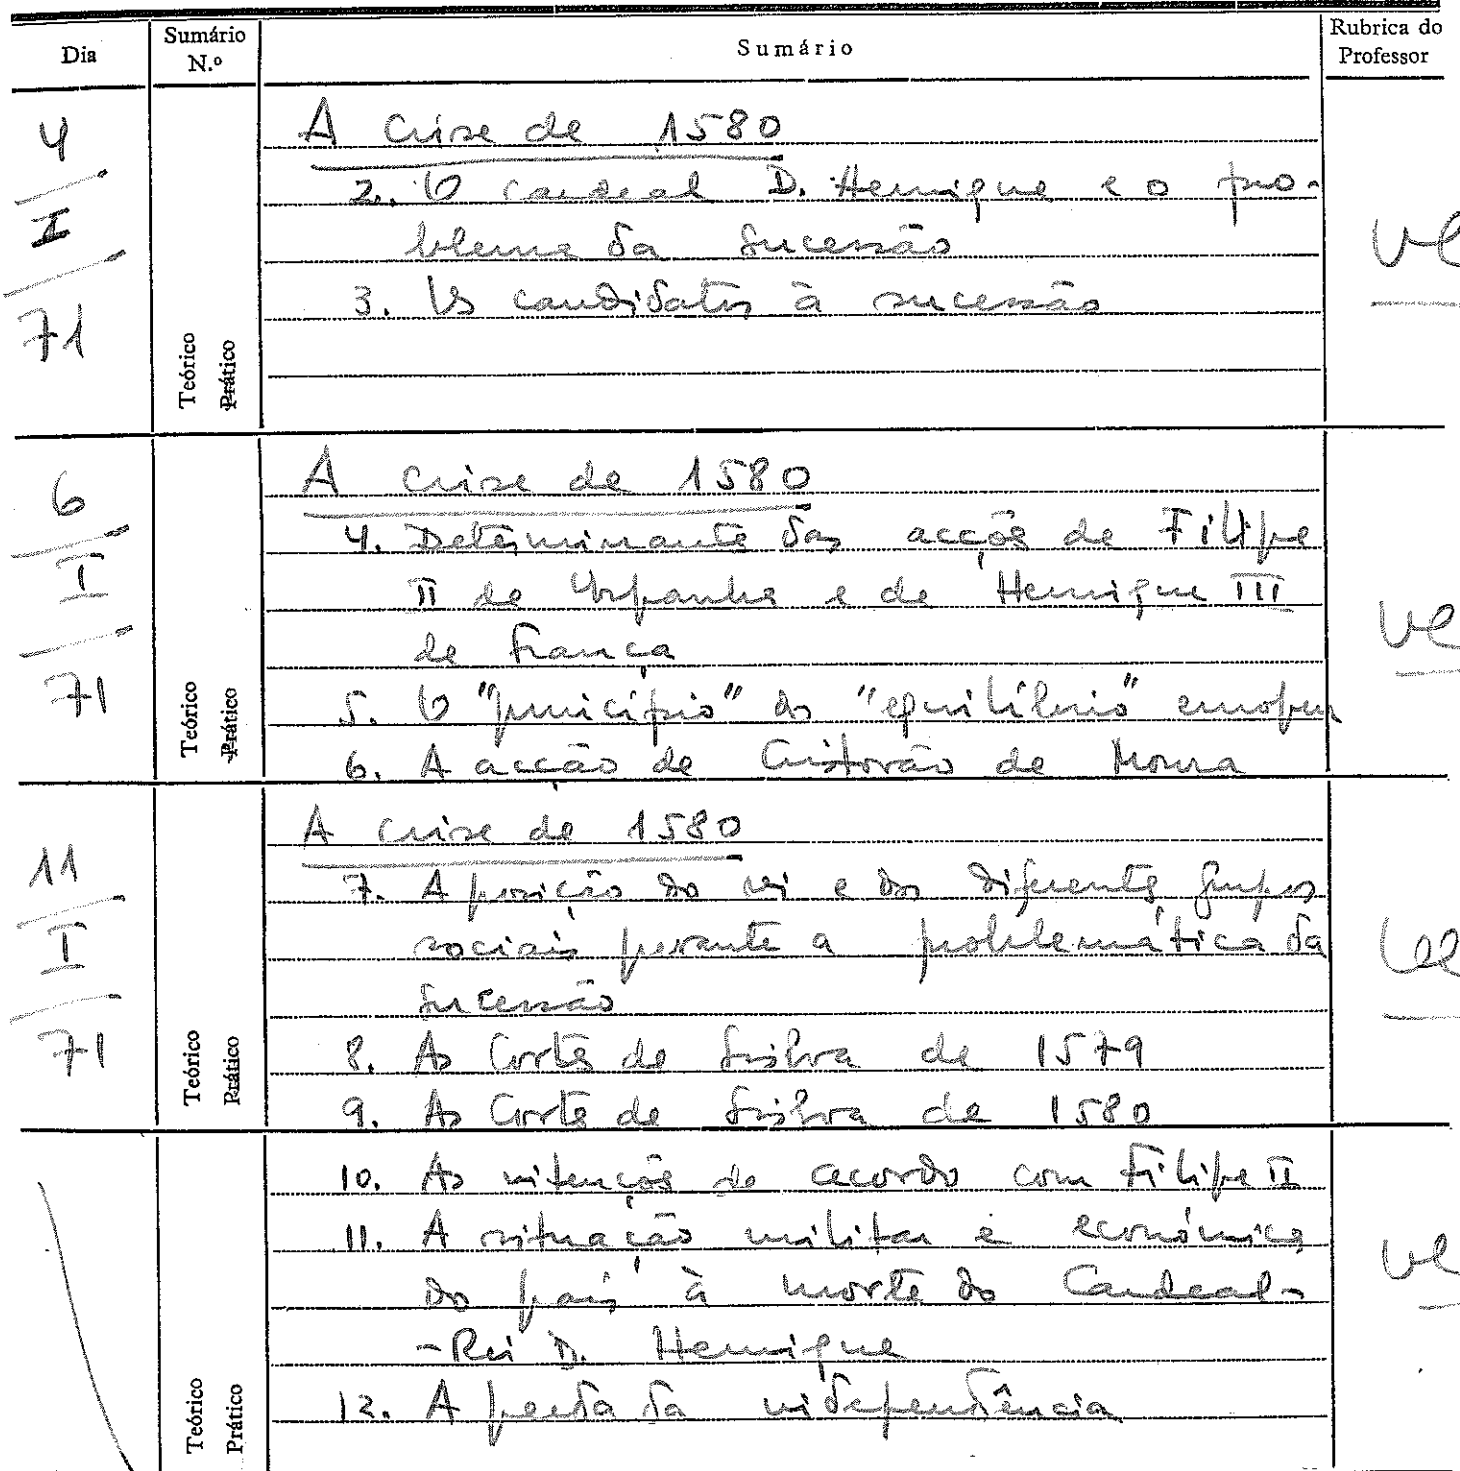 Dia
Sumário N.º
Sumário
Rubrica do Professor
4
I
71
Teórico
Prático
A Crise de 1580
2. O cardeal D. Henrique e o pro-
blema da sucessão
3. Os candidatos à sucessão
6
I
71
Teórico
Prático
A crise de 1580
4. Determinante das acções de Filipe
II de Espanha e de Henrique III
de França
5. O "princípio" do "equilíbrio" europeu
6. A acção de Cristovão de Moura
11
I
71
Teórico
Prático
A crise de 1580
7. A posição do rei e dos diferentes grupos
sociais perante a problemática da
sucessão
8. As Cortes de Lisboa de 1579
9. As Cortes de Lisboa de 1580
Teórico
Prático
10. As intenções de acordo com Filipe II
11. A situação militar e económica
do país à morte do Cardeal-
-Rei D. Henrique
12. A perda da independência